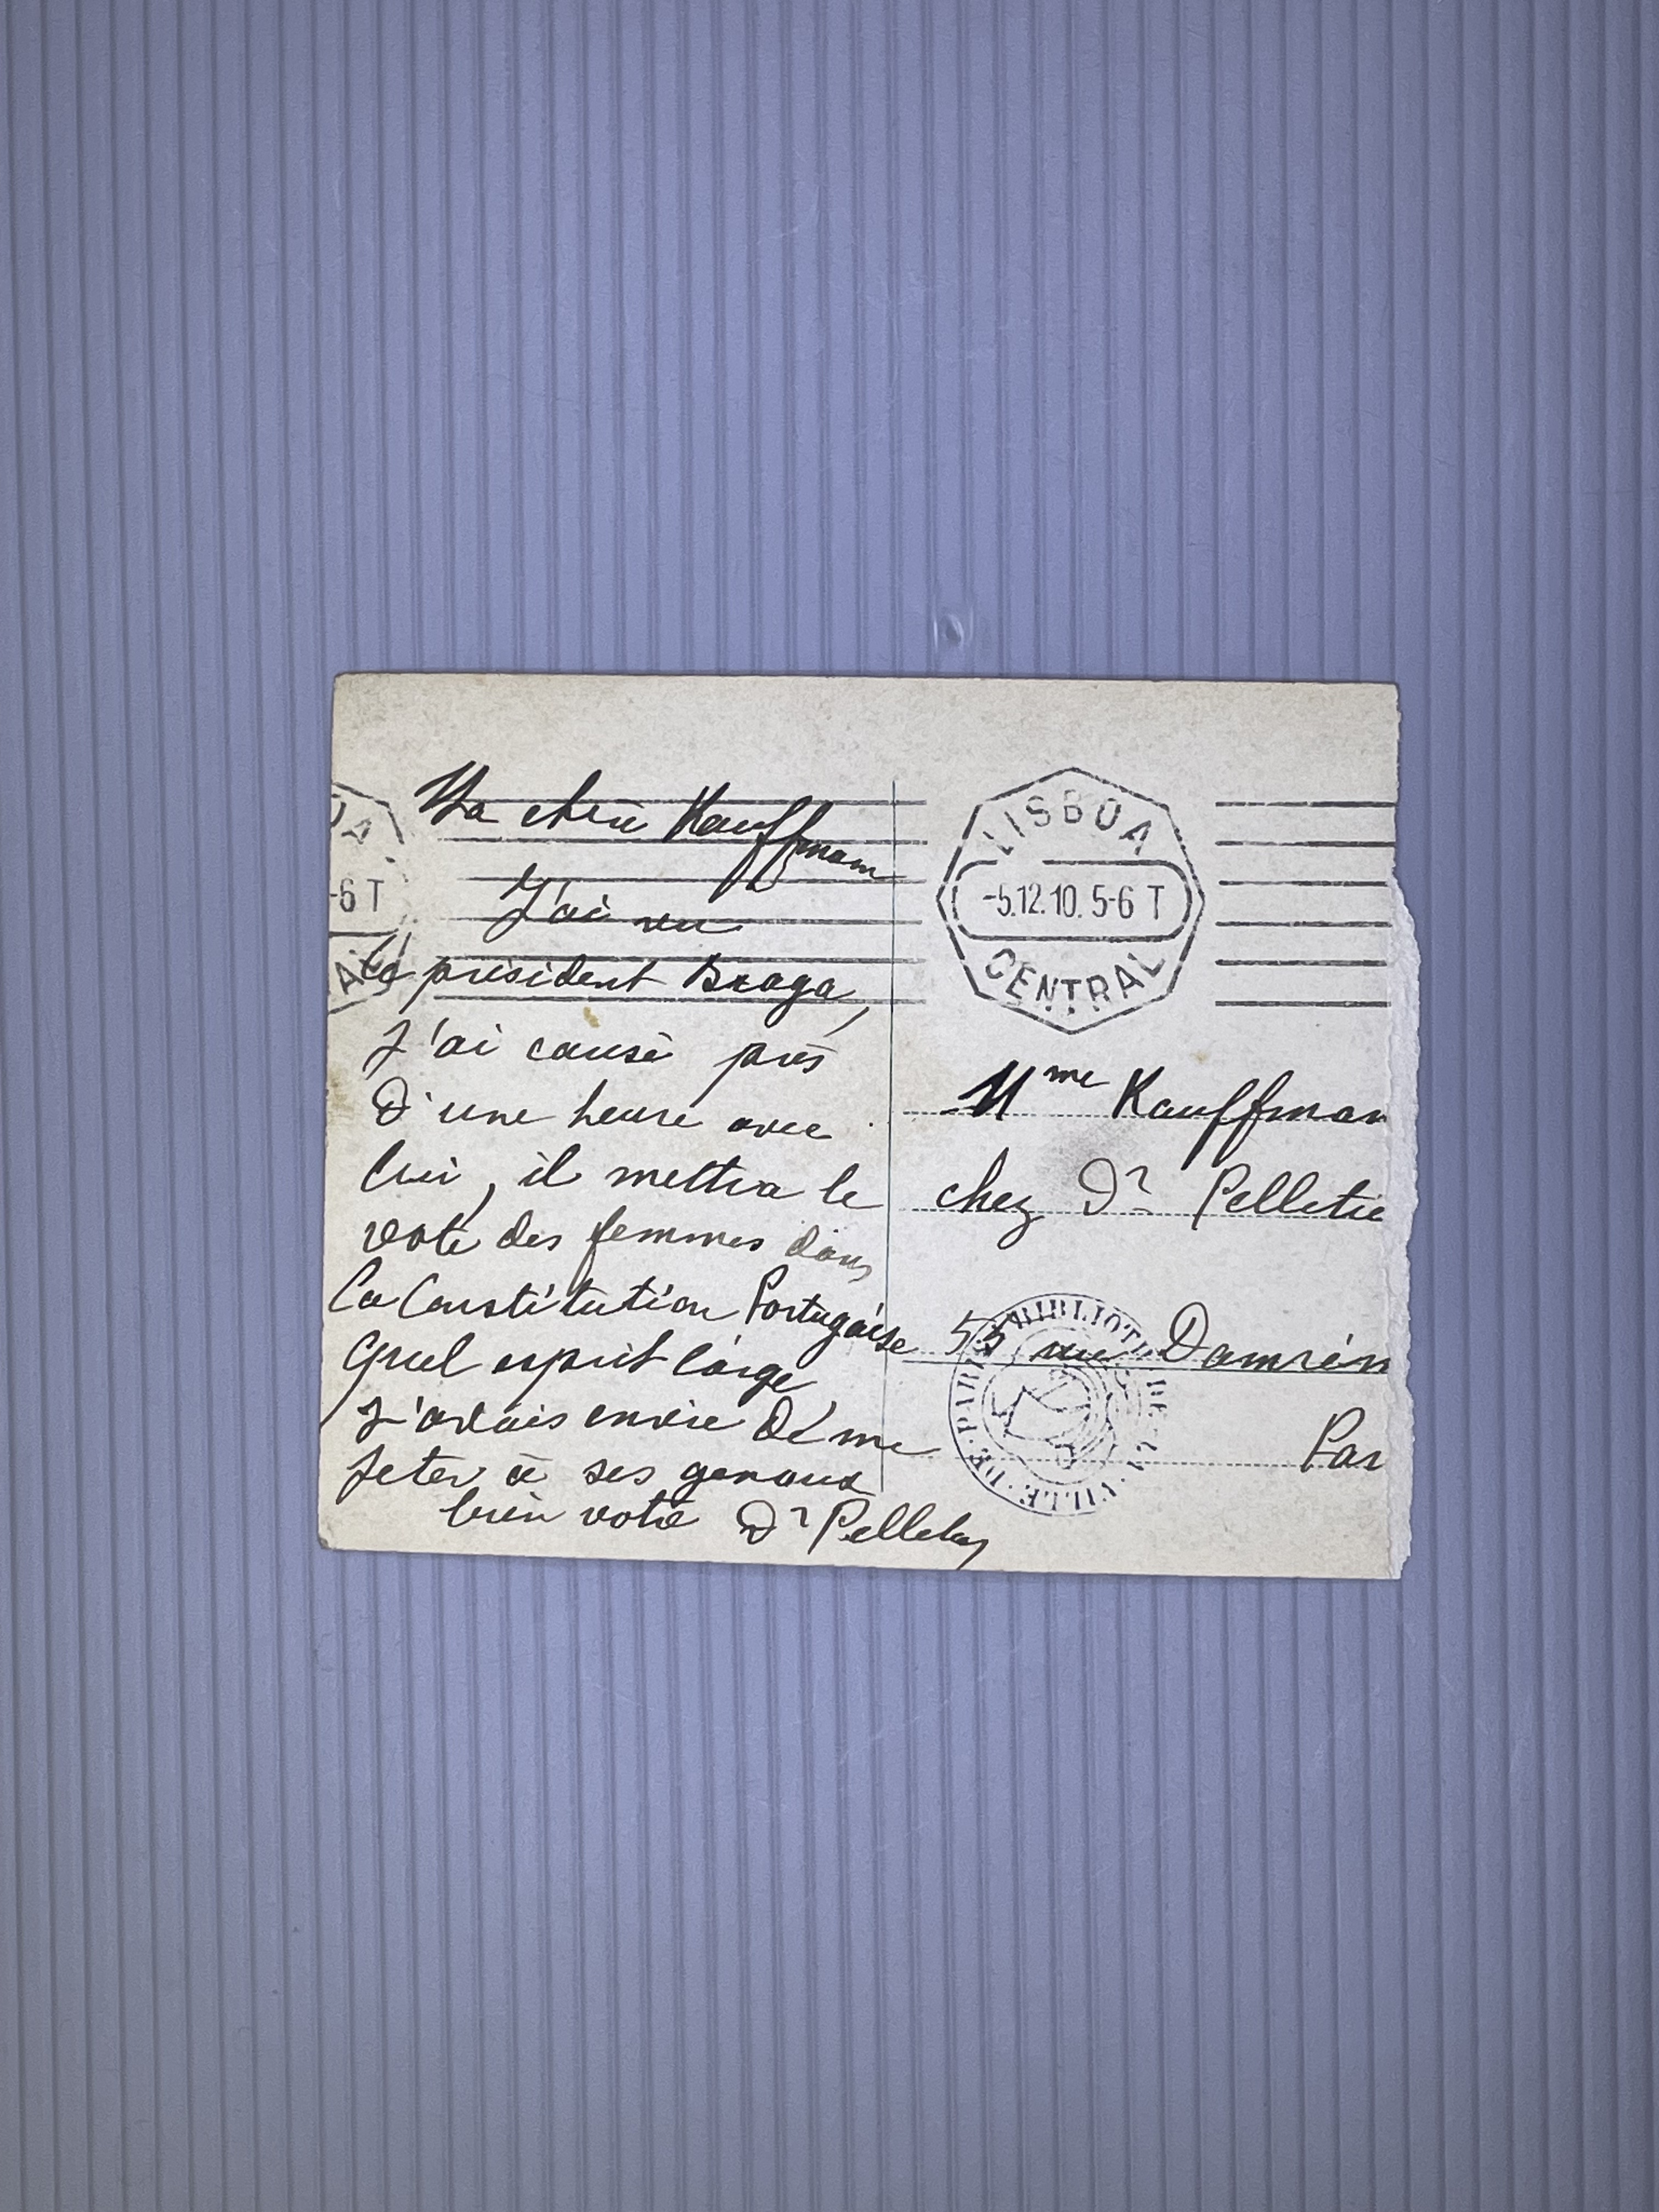 Ma chère Kauffmann
J'ai vu
le président Braga,
J'ai causé près
d'une heure avec
lui, il mettra le
vote des femmes dans
la Constitution Portugaise
quel esprit large
J'avais envie de me
jeter à ses genoux
bien votre Dr Pelletier
LISBOA
-5.12.10. 5-6 T
CENTRAL
-6 T
Mme Kauffman
chez Dr Pelletie
55 rue Damrém
Par
BIBLIOT DE LA VILLE DE PARIS